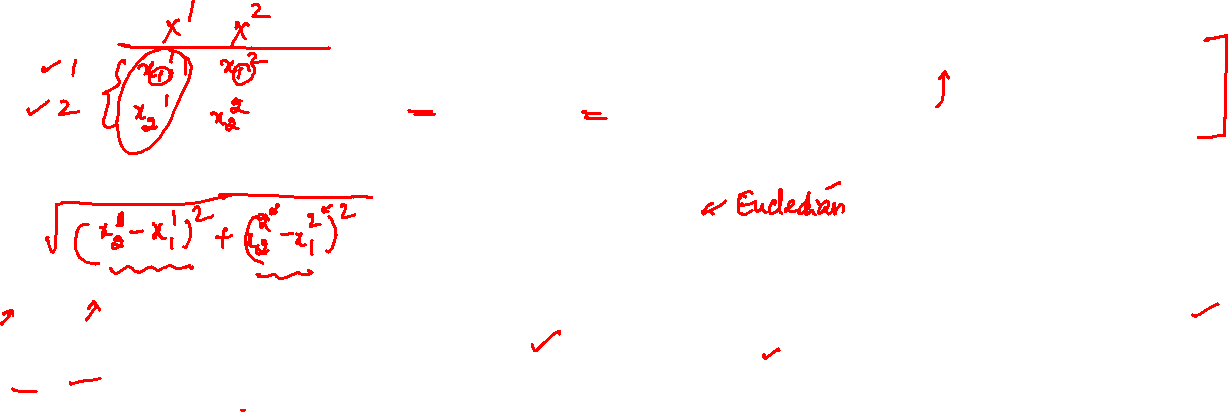 x¹ x²
✓ 1 { x₁¹ x₁²
✓ 2 x₂¹ x₂² − =
√((x₂¹ − x₁¹)² + (x₂² − x₁²)²)
← Eucledian